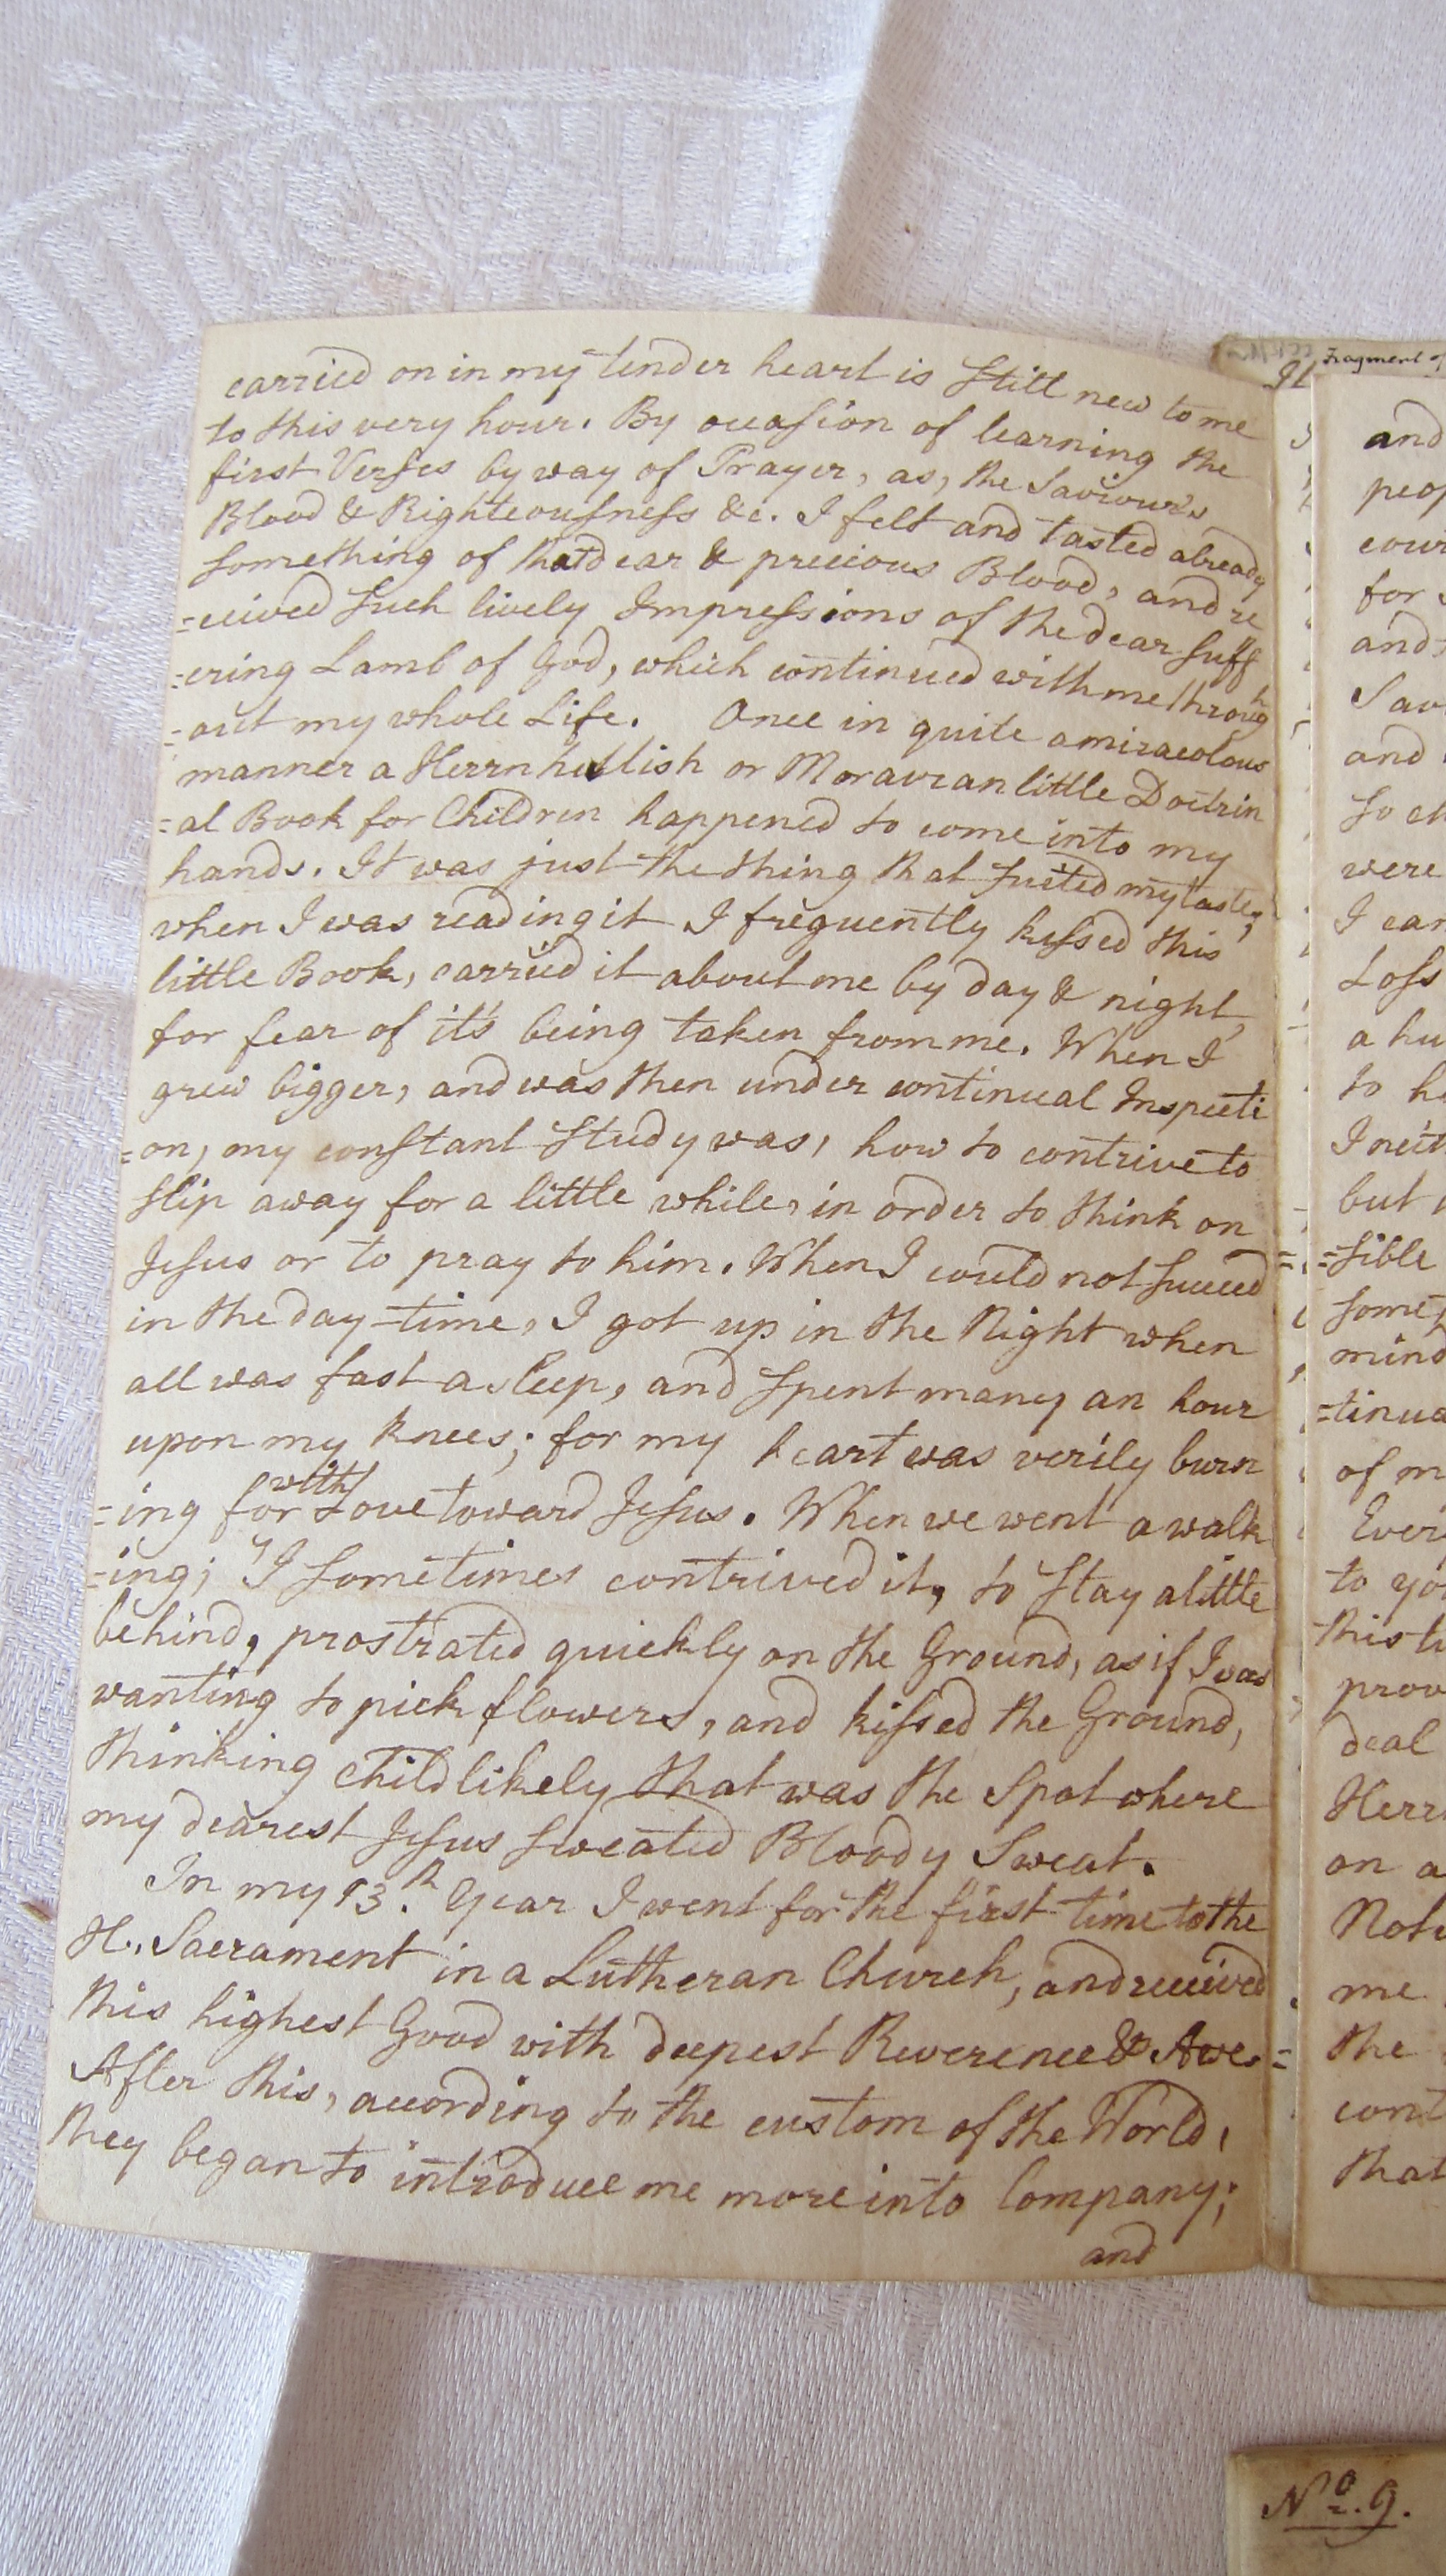 carried on in my tender heart is still new to me
to this very hour. By occasion of learning the
first Verses by way of Prayer, as, the Saviour's
Blood & Righteousness &c. I felt and tasted already
something of that dear & precious Blood, and re
=ceived such lively Impressions of the dear suff
=ering Lamb of God, which continued with me through
=out my whole Life. Once in quite a miracolous
manner a Herrnhutlish or Moravian little Doctrin
=al Book for Children happened to come into my
hands. It was just the thing that suited my taste;
when I was reading it I frequently kissed this
little Book, carried it about me by day & night,
for fear of it's being taken from me. When I
grew bigger, and was then under continual Inspecti
=on, my constant study was, how to contrive to
slip away for a little while, in order to think on
Jesus or to pray to him. When I could not succeed
in the day-time, I got up in the Night when
all was fast asleep, and spent many an hour
upon my knees; for my heart was verily burn
=ing for with Love toward Jesus. When we went a walk
=ing; I sometimes contrived it, to stay a little
behind, prostrated quickly on the Ground, as if I was
wanting to pick flowers, and kissed the Ground,
thinking childlikely that was the Spot where
my dearest Jesus sweated Bloody Sweat.
In my 13.th Year I went for the first time to the
H. Sacrament in a Lutheran Church, and received
this highest Good with deepest Reverence & Awe.
After this, according to the custom of the World,
they began to introduce me more into Company;
and
Fragment of
and
peop
cour
for
and
Sav
and
so ch
were
I can
Loss
a hu
to h
I neit
but
=sible
some
mind
=tinua
of m
Ever
to yo
this li
prov
deal
Herr
on a
Not
me
the
cont
that
No. 9.